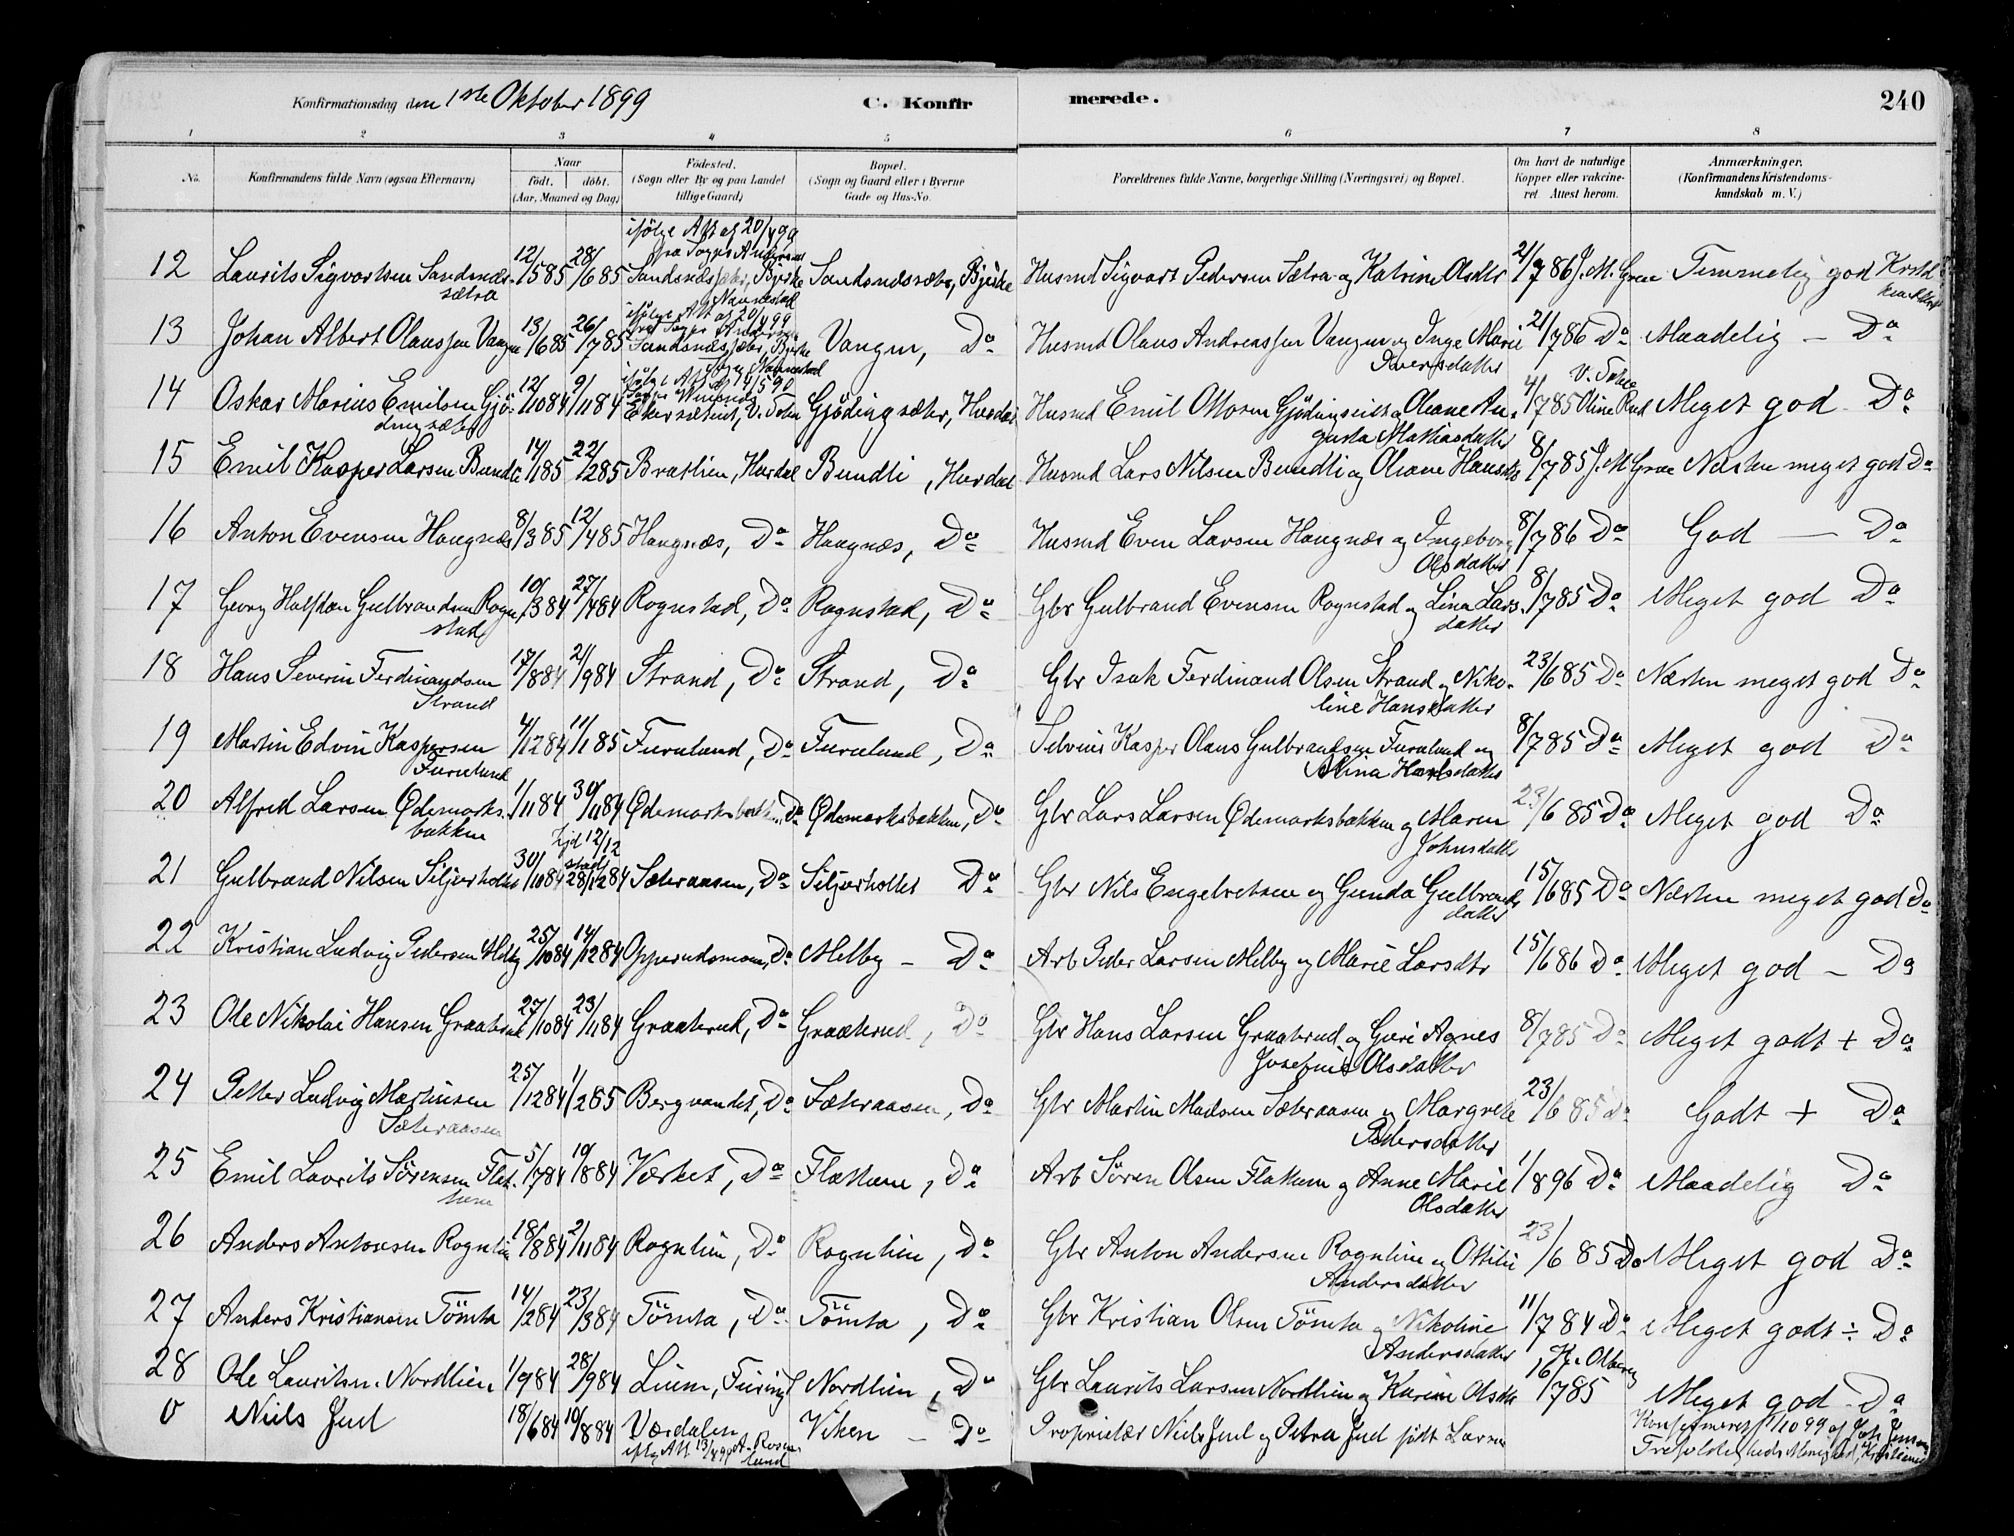 Konfirmationsdag den 1ste Oktober 1899 C. Konfirmerede. 240
1 2 3 4 5 6 7 8
No. Konfirmandens fulde Navn (ogsaa Efternavn) Naar født. døbt. (Aar, Maaned og Dag) Fødested. (Sogn eller By og paa Landet tillige Gaard) Bopæl. (Sogn og Gaard eller i Byerne Gade og Hus-No. Forældrenes fulde Navne, borgerlige Stilling (Næringsvei) og Bopæl. Om havt de naturlige Kopper eller vakcineret. Attest herom. Anmærkninger. (Konfirmandens Kristendomskundskab m. V.)
ifølge Att af 20/4 99
fra Sogns
12 Laurits Sigvartsen Sandsnæssætra 12/5 85 28/6 85 Sandsnæssæter, Bjerke Nannestad Sandsnæssæter, Bjerke Husmd Sigvart Pedersen Sætra og Katrine Olsdtr 21/7 86 J. M. Groe Temmelig god Kristd kundskab
ifølge Att af 20/4 99
13 Johan Albert Olaussen Vangen 13/6 85 26/7 85 Sandsnæssæter, Bjerke Vangen, Do Husmd Olaus Andreassen Vangen og Inge Marie Iversdatter 21/7 86 Do Maadelig – Do
ifølge Att af 4/5 90
14 Oskar Marius Emilsen Gjødingsæter 12/10 84 9/11 84 V. Toten Gjødingsæter, Hurdal Husmd Emil Ottosen Gjødingseie og Oleane Augusta Mathiasdatter 4/7 85 V. Toten Oline Rud Meget god Do
15 Emil Kasper Larsen Bundli 14/1 85 22/2 85 Bratlien, Hurdal Bundli, Hurdal Husmd Lars Nilsen Bundli og Oleane Hansdtr 8/7 85 J. M. Groe Næsten meget god Do
16 Anton Evensen Haugnæs 8/3 85 12/4 85 Haugnæs, Do Haugnæs, Do Husmd Even Larsen Haugnæs og Ingeborg Olsdatter 8/7 86 Do God – Do
17 Georg Halfdan Gulbrandsen Rognstad 10/3 84 27/4 84 Rognstad, Do Rognstad, Do Gbr Gulbrand Evensen Rognstad og Lina Larsdatter 8/7 85 Do Meget god Do
18 Hans Severin Ferdinandsen Strand 17/8 84 21/9 84 Strand, Do Strand, Do Gbr Isak Ferdinand Olsen Strand og Nikoline Hansdatter 23/6 85 Do Næsten meget god Do
19 Martin Edvin Kaspersen Furulund 4/12 84 11/1 85 Furulund, Do Furulund, Do Selveier Kasper Olaus Gulbrandsen Furulund og Alina Karlsdatter 8/7 85 Do Meget god Do
20 Alfred Larsen Ødemarksbakken 1/11 84 30/11 84 Ødemarksbakken, Do Ødemarksbakken, Do Gbr Lars Larsen Ødemarksbakken og Maren Johnsdatter 23/6 85 Do Meget god Do
21 Gulbrand Nilsen Siljerholtet 30/10 84 hjd 12/12 stadf 28/12 84 Sæteraasen, Do Siljerholtet Do Gbr Nils Engebretsen og Gunda Gulbrandsdatter 15/6 85 Do Næsten meget god Do
22 Kristian Ludvig Pedersen Melby 25/10 84 14/12 84 Opperudsmoen, Do Melby – Do Arb Peder Larsen Melby og Marie Larsdtr 15/6 86 Do Meget god – Do
23 Ole Nikolai Hansen Graaberud 27/10 84 23/11 84 Graaberud, Do Graaberud, Do Gbr Hans Larsen Graaberud og Guri Agnes Josefine Olsdatter 8/7 85 Do Meget godt + Do
24 Petter Ludvig Martinsen Sæteraasen 25/12 84 1/2 85 Bergvandet, Do Sæteraasen, Do Gbr Martin Madsen Sæteraasen og Margrete Pedersdatter 23/6 85 Do Godt + Do
25 Emil Laurits Sørensen Flathem 5/7 84 10/8 84 Værket, Do Flathem, Do Arb Søren Olsen Flathem og Anne Marie Olsdatter 1/8 96 Do Maadelig Do
26 Anders Antonsen Rognlien 18/8 84 2/11 84 Rognlien, Do Rognlien, Do Gbr Anton Andersen Rognlien og Ottilie Andersdatter 23/6 85 Do Meget god Do
27 Anders Kristiansen Tömta 14/2 84 23/3 84 Tömta, Do Tömta, Do Gbr Kristian Olsen Tömta og Nikoline Andersdatter 11/7 84 Do Meget godt ÷ Do
28 Ole Lauritsen Nordlien 1/9 84 28/9 84 Liem, Feiring Nordlien, Do Gbr Laurits Larsen Nordlien og Karine Olsdtr 16/7 85 Meget god – Do
0 Niels Juel 18/6 84 10/8 84 Værdalen ifølg Att 13/4 99 A. Rosenlund Viken – Do Proprietær Niels Juel og Petra Juel født Larsen Konfirmeret 1/10 99 af Joh Jensen Trefoldigheds Menighed, Kristiania